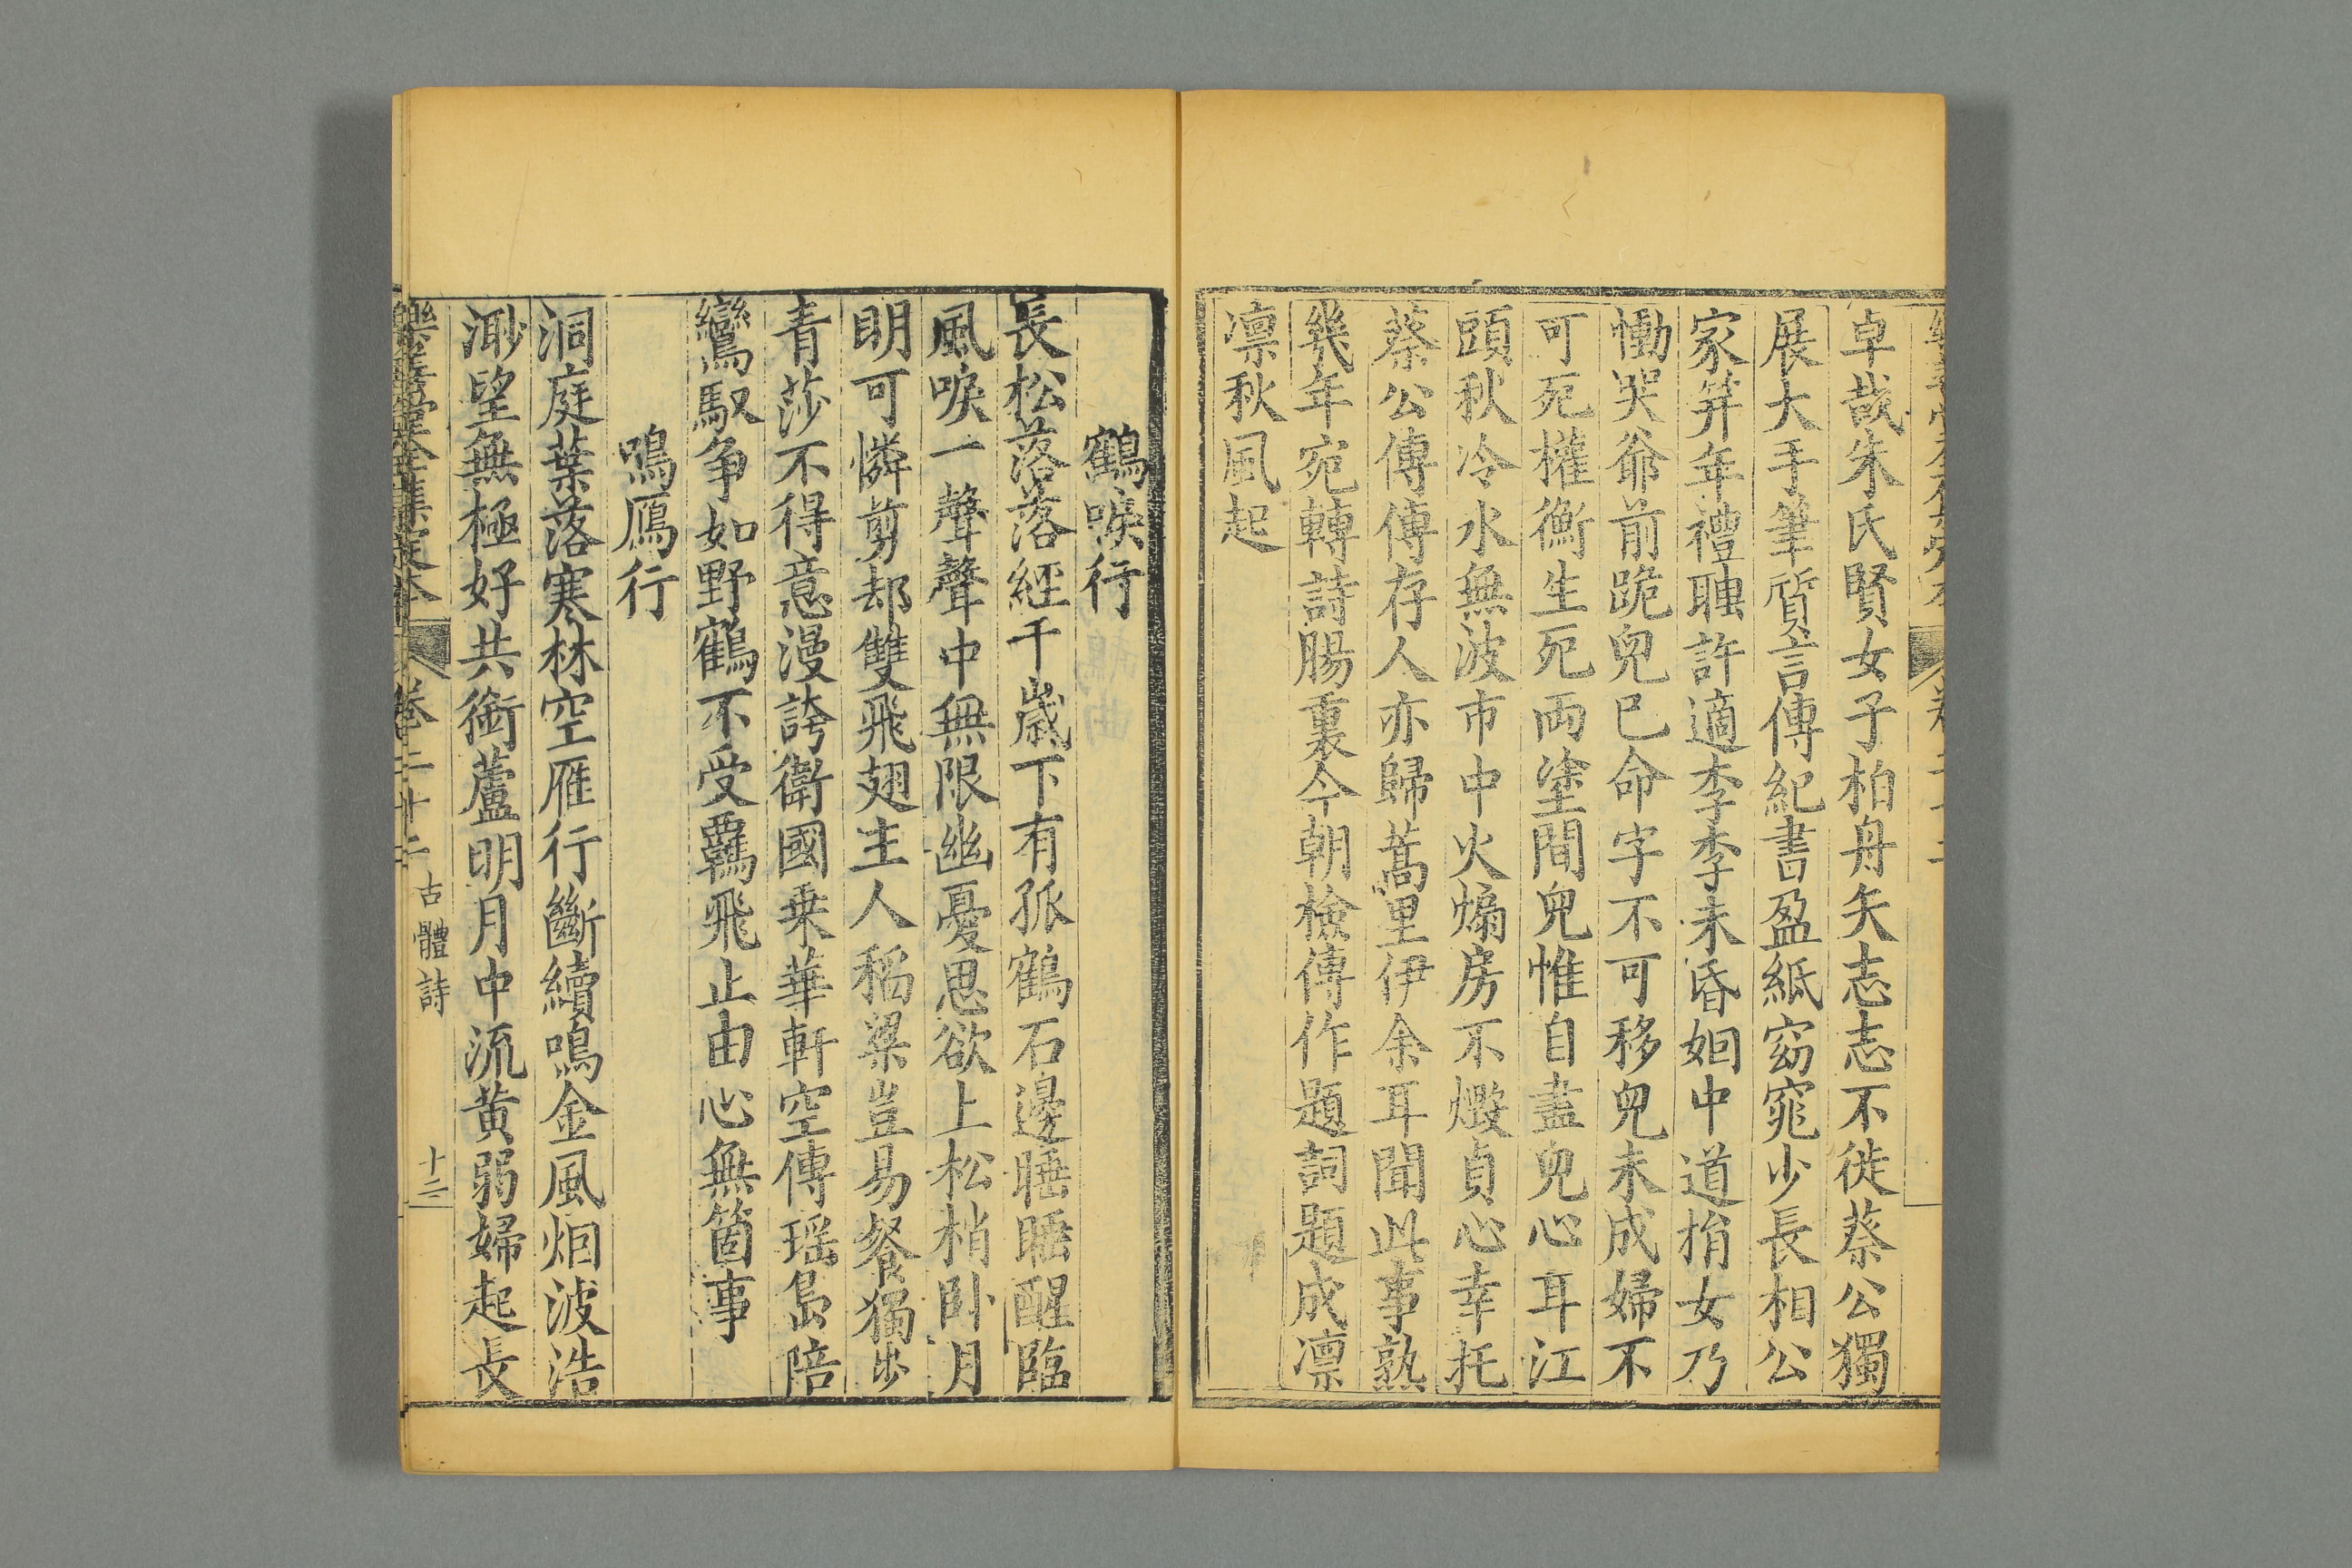 卓哉朱氏賢女子柏舟矢志志不徙蔡公獨
展大手筆質言傳紀書盈紙窈窕少長相公
家笄年禮聘許適李李未昏姻中道捐女乃
慟哭爺前跪兒已命字不可移兒未成婦不
可死權衡生死両塗間兒惟自盡兒心耳江
頭秋冷水無波市中火煽房不燬貞心幸托
蔡公傳傳存人亦歸蒿里伊余耳聞此事熟
幾年宛轉詩腸裏今朝檢傳作題詞題成凛
凛秋風起
鶴唳行
長松落落經千歲下有孤鶴石邊睡睡醒臨
風唳一聲聲中無限幽憂思欲上松梢卧月
明可憐剪却雙飛翅主人稻粱豈易餐獨步
青莎不得意漫誇衛國乗華軒空傳瑶島陪
鸞馭争如野鶴不受覊飛止由心無箇事
鳴鴈行
洞庭葉落寒林空雁行斷續鳴金風烟波浩
渺望無極好共銜蘆明月中流黄弱婦起長
卷二十二
古體詩
十二